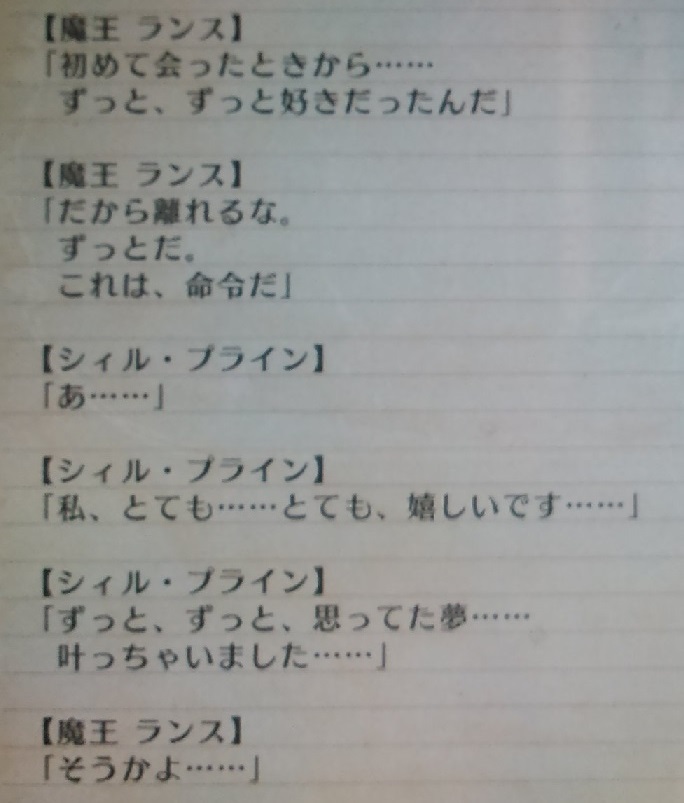 【魔王 ランス】
「初めて会ったときから……
ずっと、ずっと好きだったんだ」
【魔王 ランス】
「だから離れるな。
ずっとだ。
これは、命令だ」
【シィル・プライン】
「あ……」
【シィル・プライン】
「私、とても……とても、嬉しいです……」
【シィル・プライン】
「ずっと、ずっと、思ってた夢……
叶っちゃいました……」
【魔王 ランス】
「そうかよ……」